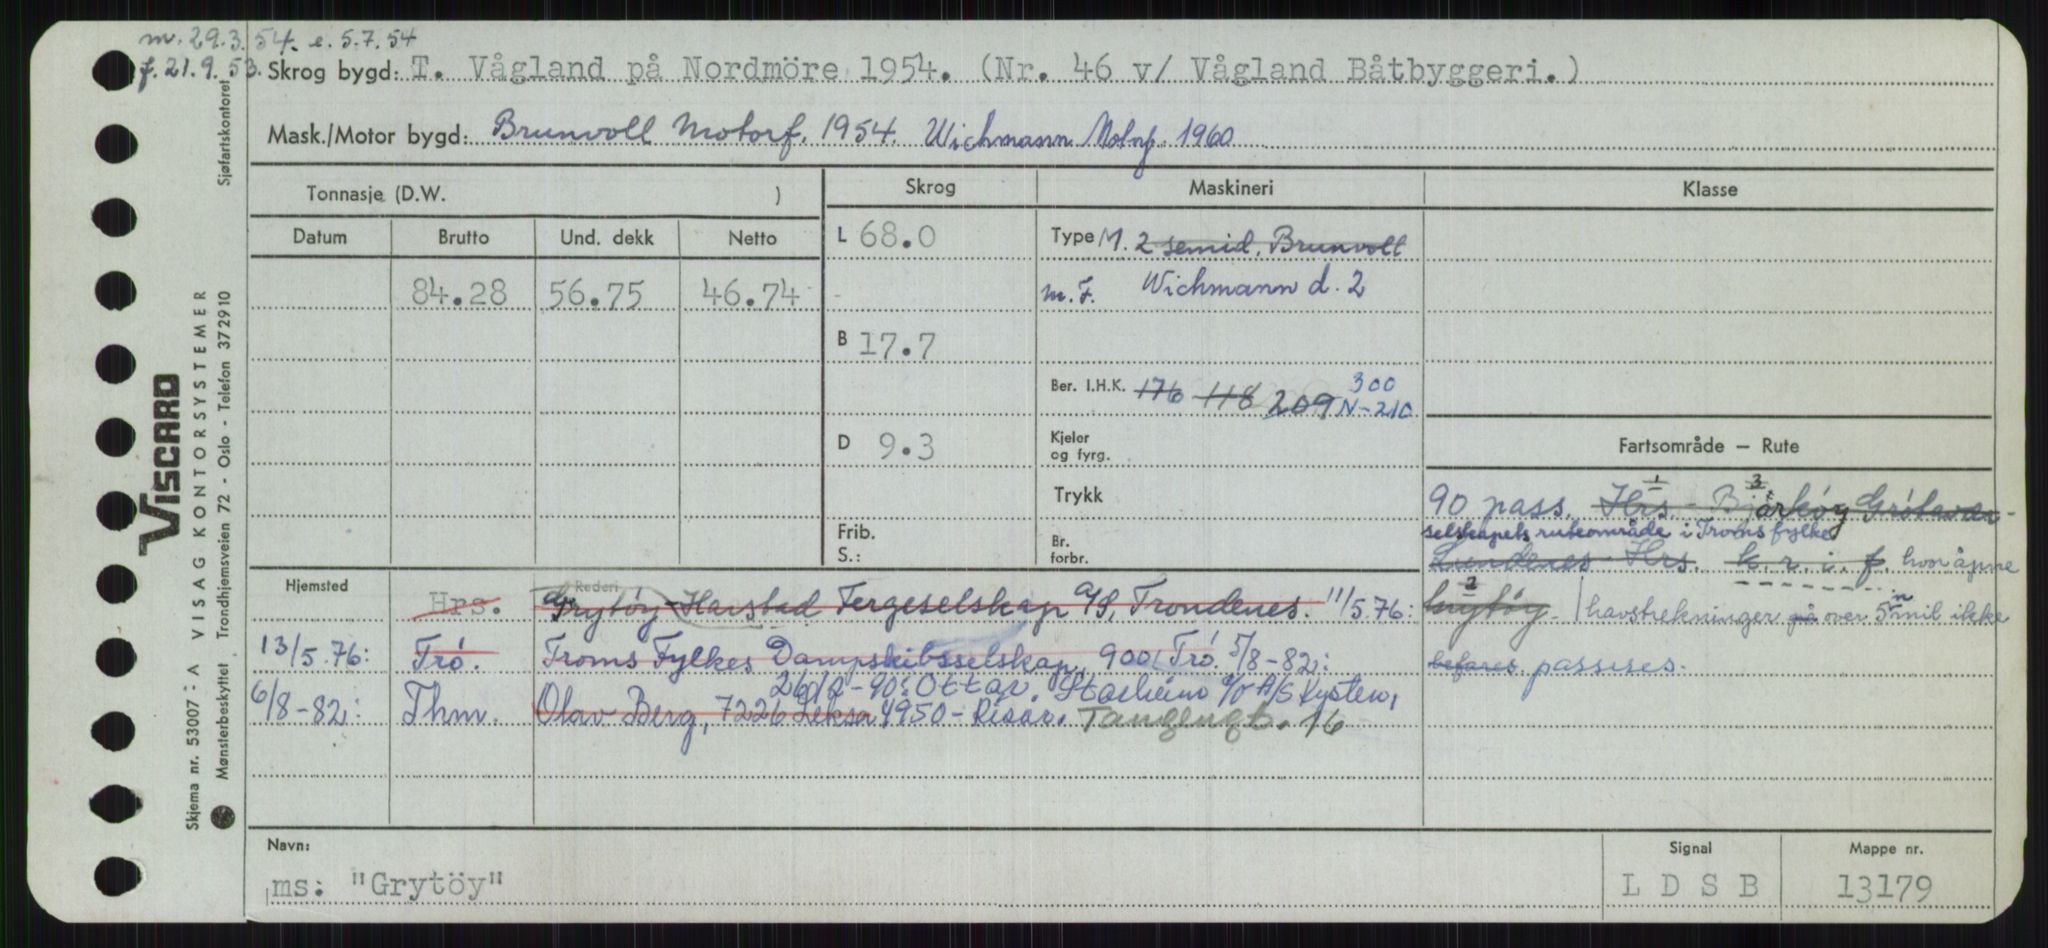 m. 29.3.54. e. 5.7.54
f. 21.9.53. Skrog bygd: T. Vågland på Nordmöre 1954. (Nr. 46 v/ Vågland Båtbyggeri.)
Mask./Motor bygd: Brunvoll Motorf. 1954. Wichmann Motorf. 1960
Tonnasje (D.W. )
Skrog
Maskineri
Klasse
Datum Brutto Und. dekk Netto
L 68.0
Type M. 2 semid. Brunvoll
84.28 56.75 46.74
m. F. Wichmann d. 2
B 17.7
Ber. I.H.K. 176 118 209 300
N-210
D 9.3
Kjeler
og fyrg.
Fartsområde — Rute
Trykk
1 3
90 pass. Hrs. - Bjarköy Grötavær-
Frib.
S.:
Br.
forbr.
selskapets ruteområde i Troms fylke
Lundenes Hrs. k. r. i. f. hvor åpne
Hjemsted
Rederi
2
Hrs. Grytöy Harstad Fergeselskap A/S, Trondenes. 11/5.76:
Grytöy. havstrekninger på over 5 n mil ikke
13/5.76: Trö. Troms Fylkes Dampskibsselskap, 9001 Trö. 5/8-82:
befares. passeres.
-90: Ottar Starheim c/o A/S Kysten,
6/8-82: Thm. Olav Berg, 7226 Leksa 4950 - Risør. Tangengt. 16
Navn:
ms: "Grytöy"
Signal
L D S B
Mappe nr.
13179
Viscard
A VISAG KONTORSYSTEMER
Sjøfartskontoret
Skjema nr. 53007:
Mønsterbeskyttet Trondhjemsveien 72 - Oslo - Telefon 372910